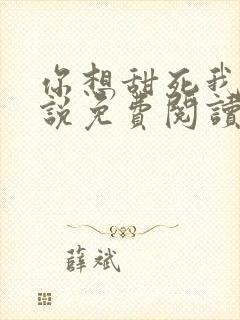 你想甜死我
說免費閱讀
薛斌